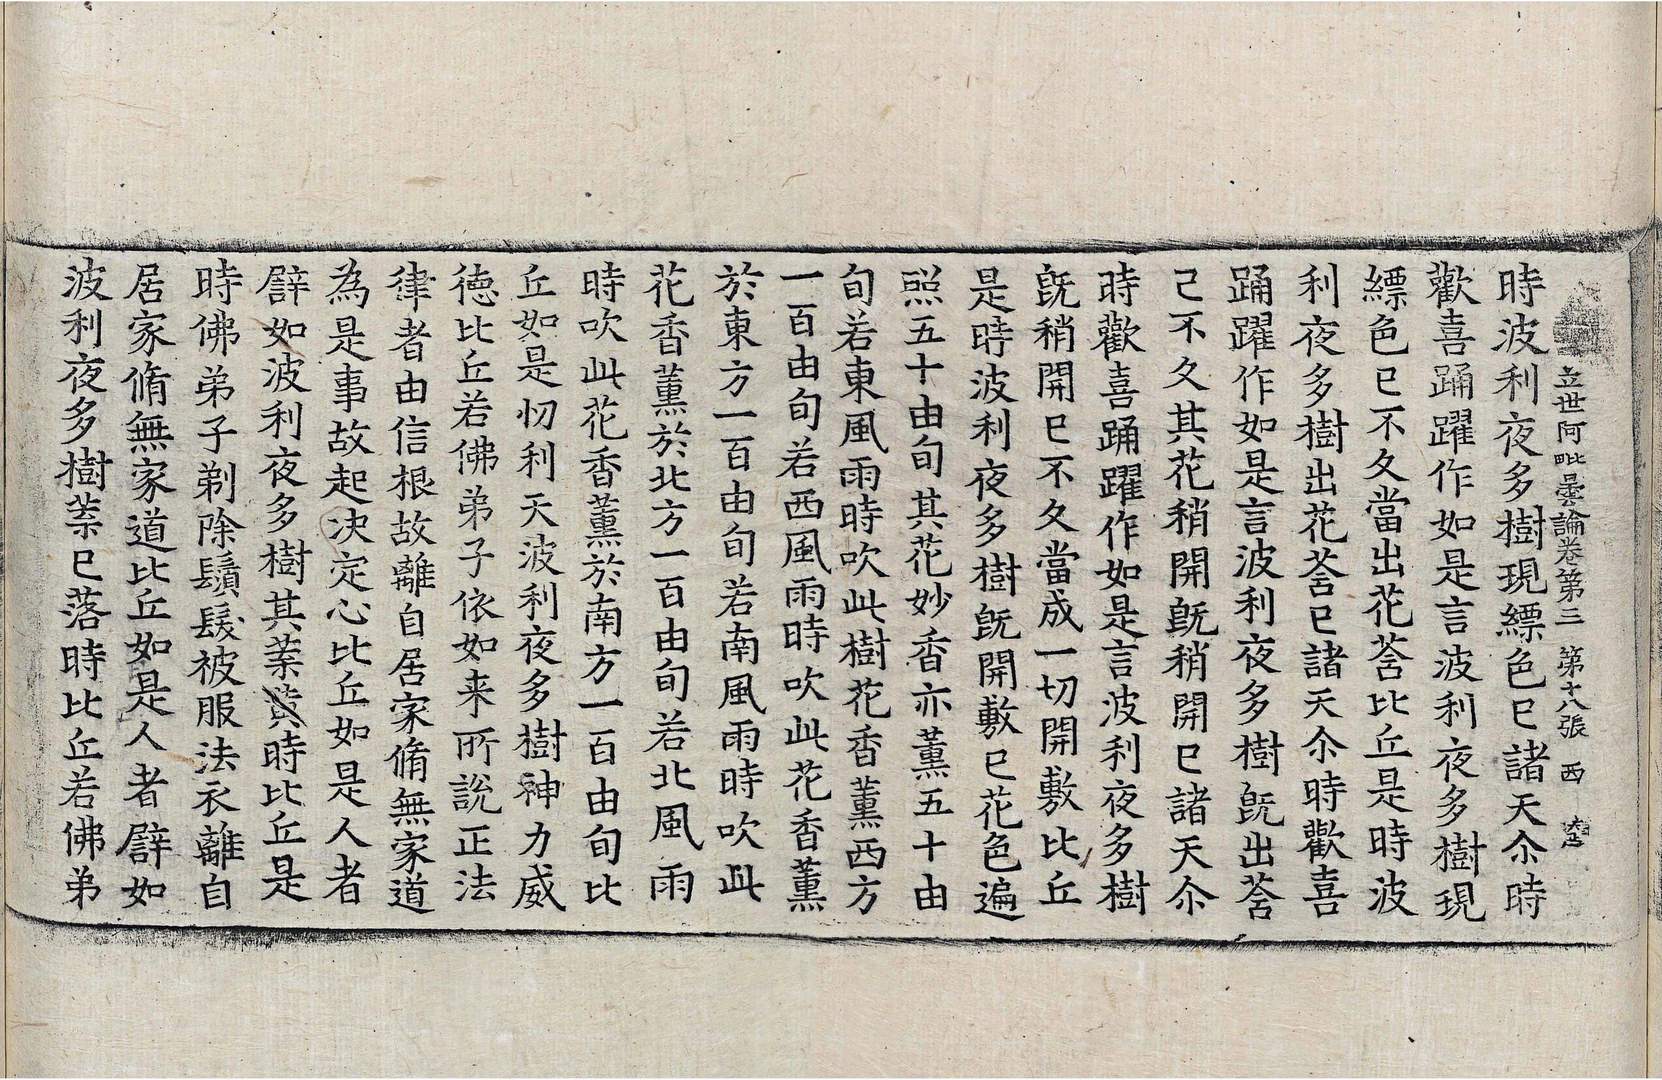 立世阿毗曇論卷第三 第十八張 西
時波利夜多樹現縹色已諸天尒時
歡喜踊躍作如是言波利夜多樹現
縹色已不久當出花荅比丘是時波
利夜多樹出花荅已諸天尒時歡喜
踊躍作如是言波利夜多樹旣出荅
已不久其花稍開旣稍開已諸天尒
時歡喜踊躍作如是言波利夜多樹
旣稍開已不久當成一切開敷比丘
是時波利夜多樹旣開敷已花色遍
照五十由旬其花妙香亦薰五十由
旬若東風雨時吹此樹花香薰西方
一百由旬若西風雨時吹此花香薰
於東方一百由旬若南風雨時吹此
花香薰於北方一百由旬若北風雨
時吹此花香薰於南方一百由旬比
丘如是忉利天波利夜多樹神力威
德比丘若佛弟子依如来所說正法
律者由信根故離自居家脩無家道
為是事故起决定心比丘如是人者
譬如波利夜多樹其葉黃時比丘是
時佛弟子剃除鬚髮被服法衣離自
居家脩無家道比丘如是人者譬如
波利夜多樹葉已落時比丘若佛弟